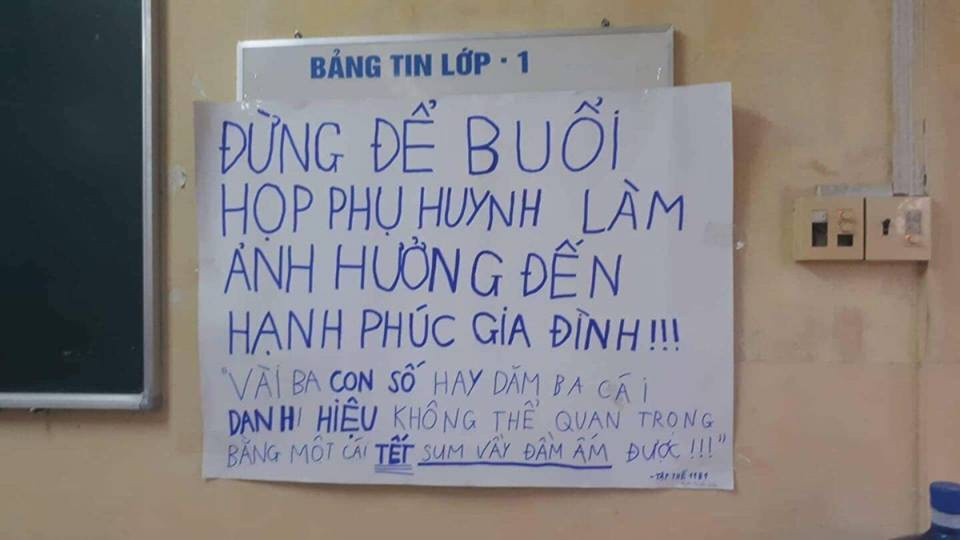 BẢNG TIN LỚP · 1
ĐỪNG ĐỂ BUỔI
HỌP PHỤ HUYNH LÀM
ẢNH HƯỞNG ĐẾN
HẠNH PHÚC GIA ĐÌNH!!!
"VÀI BA CON SỐ HAY DĂM BA CÁI
DANH HIỆU KHÔNG THỂ QUAN TRỌNG
BẰNG MỘT CÁI TẾT SUM VẦY ĐẦM ẤM ĐƯỢC!!!"
-TẬP THỂ 11B1